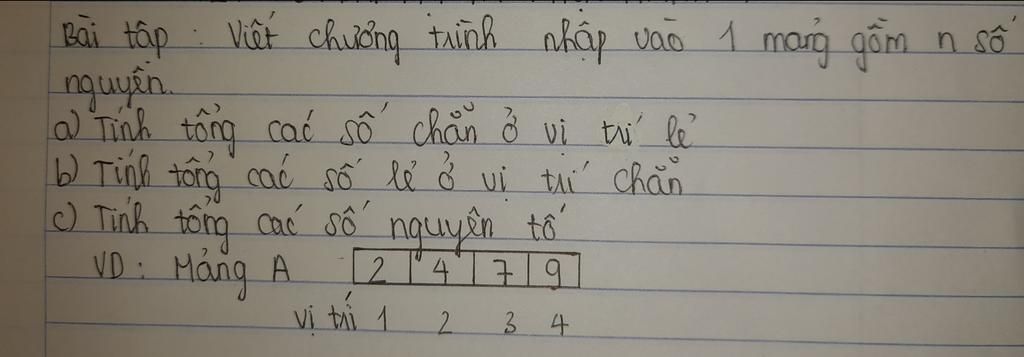 Bài tập : Viết chương trình nhập vào 1 mảng gồm n số
nguyên.
a) Tính tổng các số chẵn ở vị trí lẻ
b) Tính tổng các số lẻ ở vị trí chẵn
c) Tính tổng các số nguyên tố
VD : Mảng A 2 4 7 9
vị trí 1 2 3 4